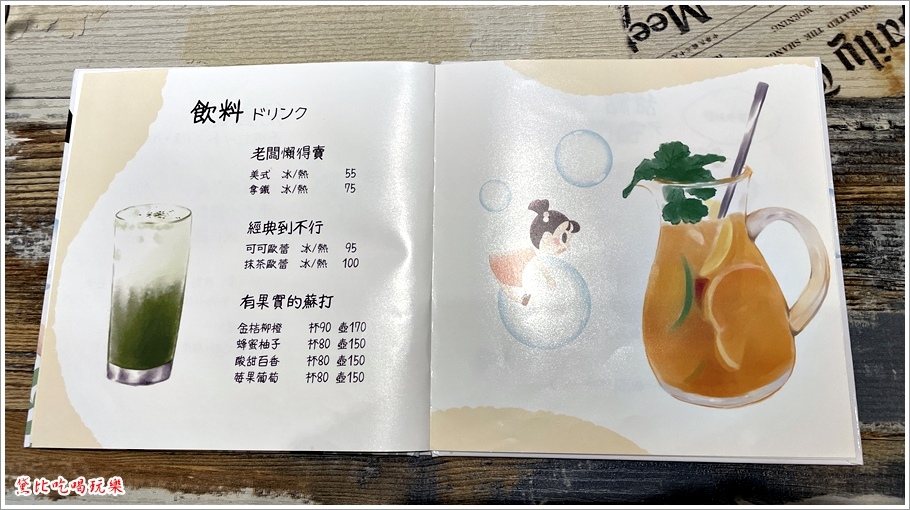 飲料 ドリンク
老闆懶得賣
美式 冰/熱 55
拿鐵 冰/熱 75
經典到不行
可可歐蕾 冰/熱 95
抹茶歐蕾 冰/熱 100
有果實的蘇打
金桔柳橙 杯90 壺170
蜂蜜柚子 杯80 壺150
酸甜百香 杯80 壺150
莓果葡萄 杯80 壺150
Meet
MORNING
黛比吃喝玩樂